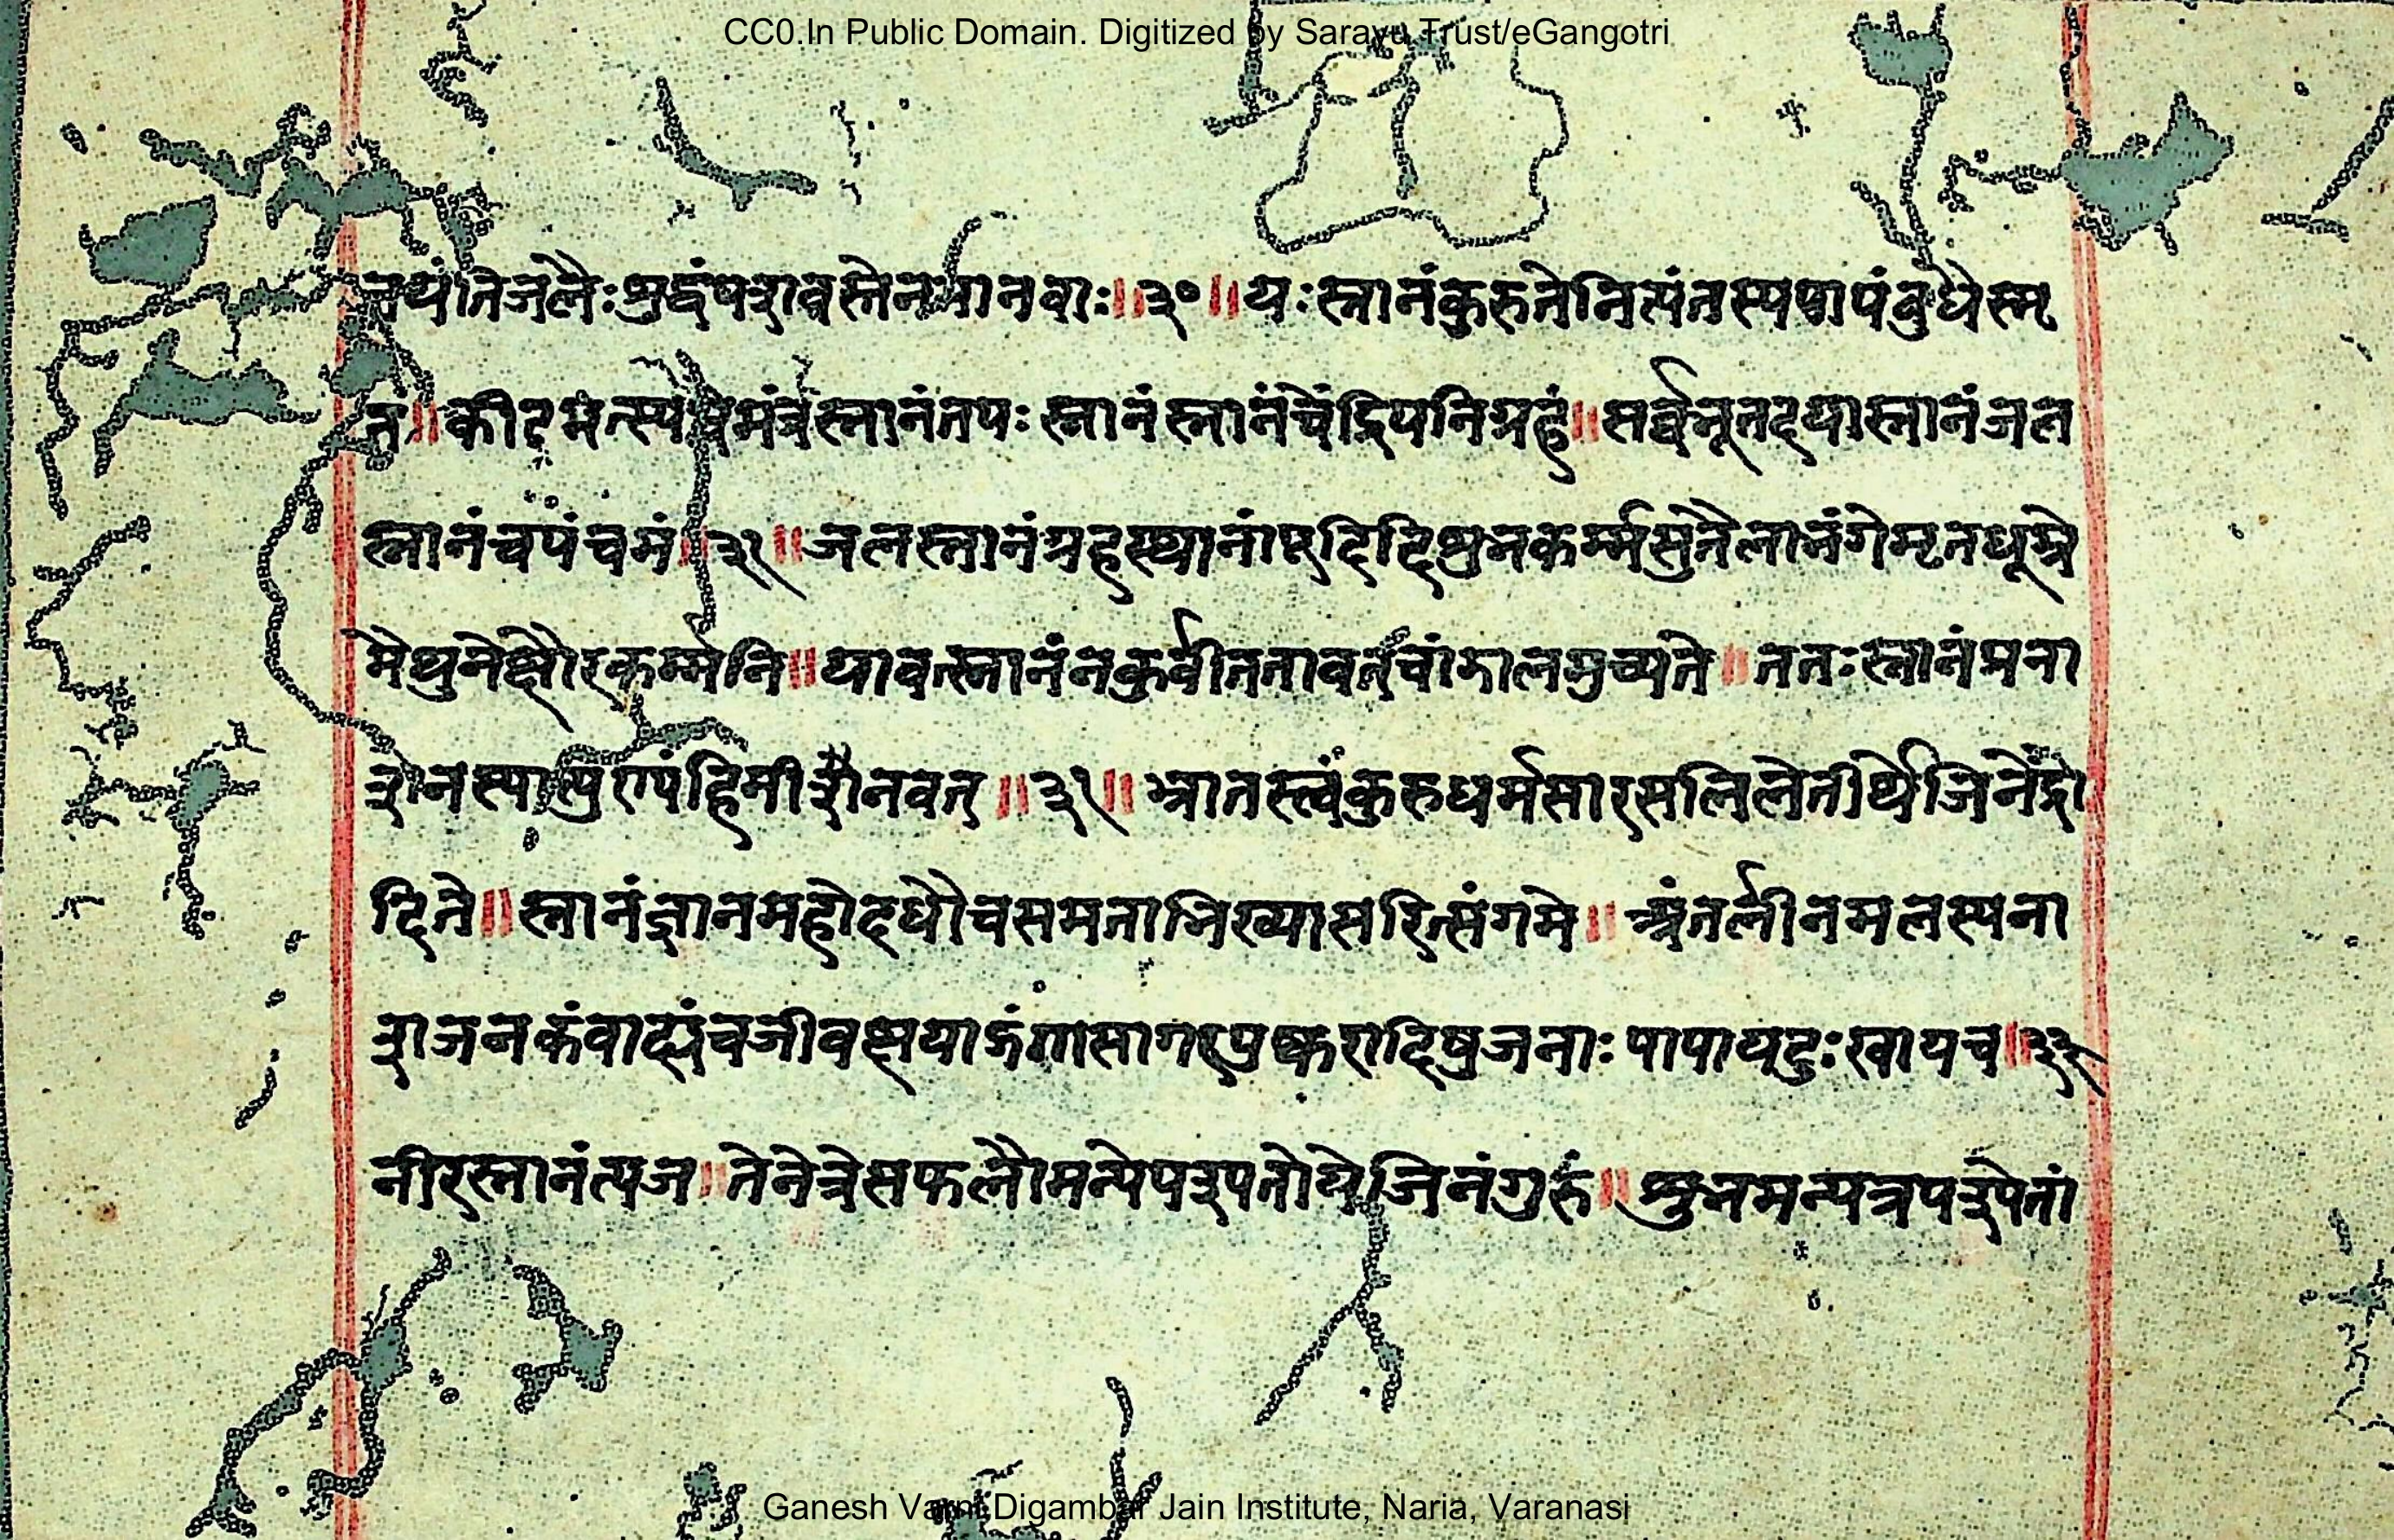 CC0.In Public Domain. Digitized by Sarayu Trust/eGangotri
नयांतिजलैः श्रुद्धंपरात्रस्तेनमानवाः ॥३०॥ यः स्नानंकुरुतेनित्यंतस्यपापंबुधैस्मृ
तं॥ कीटमत्स्य मंत्रस्नानंतपः स्नानंस्नानंचेंद्रियनिग्रहं॥सर्व्वभूतदयास्नानंजल
स्नानंचपंचमं॥३१॥जलस्नानंग्रहस्थानां श्रुभकर्म्मसुतैलानंगेमृतधूम्रे
मैथुनेक्षौरकर्म्मनि॥यावत्स्नानंनकुर्वीततावत्चांडालमुच्यते॥ ततःस्नानंप्रना
हिमीशैनवत्॥३१॥ भ्रातस्त्वंकुरुधर्मसारसलिलेतीर्थेजिनेंद्रो
दिते॥ स्नानंज्ञानमहोदधौचसमताभिख्यासरित्संगमे॥ अंतर्लीनमलस्यना
शजनकंवाह्यंचजीवक्षया गंगासागरपुष्करादिषुजनाः पापायदुःखायच॥३२
नीरस्नानंत्यज॥तेनेत्रेसफलौमन्येपश्यतोयेजिनंगुरुं॥ श्रुतमन्यत्रपश्येतां
Ganesh Varni Digambar Jain Institute, Naria, Varanasi